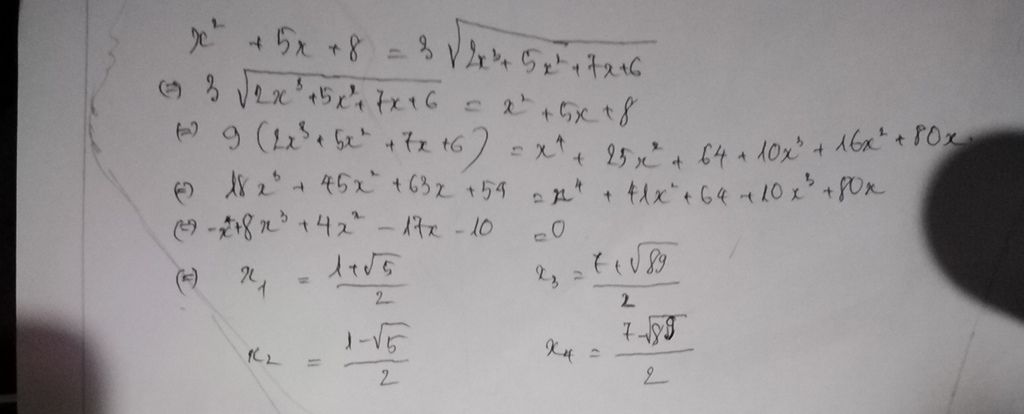 x² + 5x + 8 = 3 √(2x³ + 5x² + 7x + 6)
(=) 3 √(2x³ + 5x² + 7x + 6) = x² + 5x + 8
(=) 9 (2x³ + 5x² + 7x + 6) = x⁴ + 25x² + 64 + 10x³ + 16x² + 80x
(=) 18x³ + 45x² + 63x + 54 = x⁴ + 41x² + 64 + 10x³ + 80x
(=) -x⁴ + 8x³ + 4x² - 17x - 10 = 0
(=) x₁ = (1 + √5)/2 x₃ = (7 + √89)/2
x₂ = (1 - √5)/2 x₄ = (7 - √89)/2